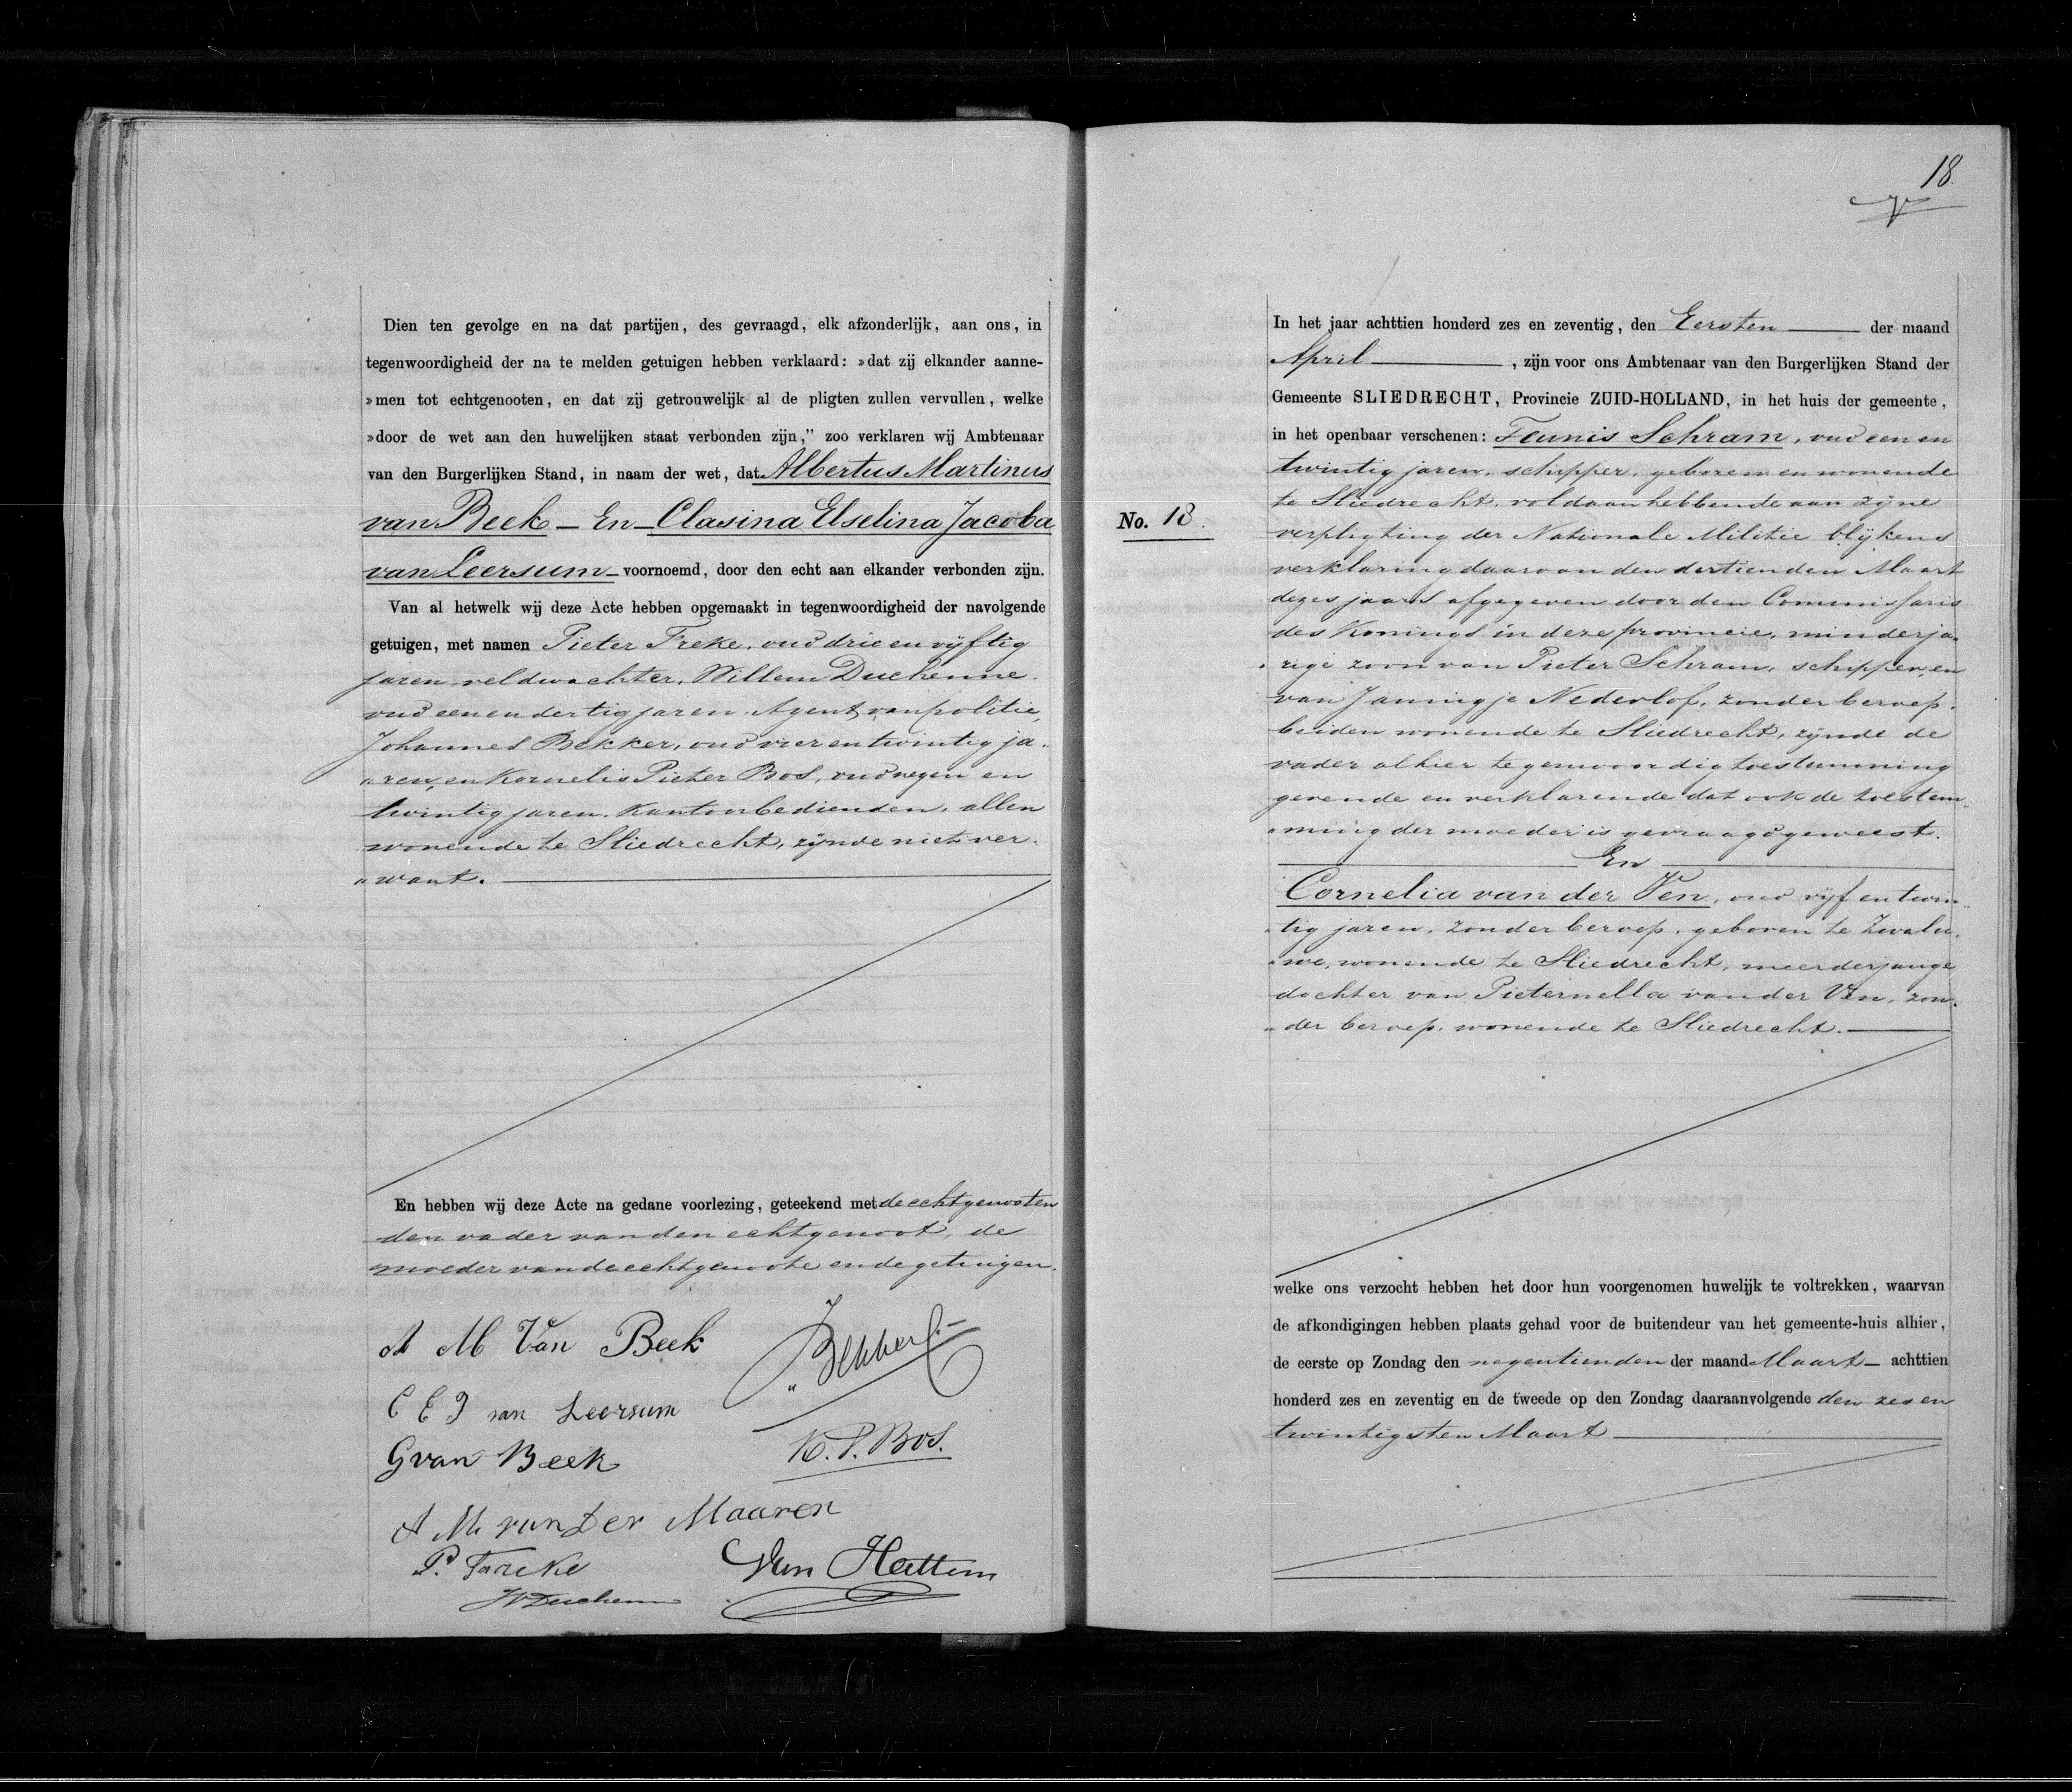 Dien ten gevolge en na dat partijen, des gevraagd, elk afzonderlijk, aan ons, in
tegenwoordigheid der na te melden getuigen hebben verklaard: »dat zij elkander aanne-
»men tot echtgenooten, en dat zij getrouwelijk al de pligten zullen vervullen, welke
»door de wet aan den huwelijken staat verbonden zijn,” zoo verklaren wij Ambtenaar
van den Burgerlijken Stand, in naam der wet, dat Albertus Martinus
van Beek – En – Clasina Elselina Jacoba
van Leersum – voornoemd, door den echt aan elkander verbonden zijn.
Van al hetwelk wij deze Acte hebben opgemaakt in tegenwoordigheid der navolgende
getuigen, met namen Pieter Freke, oud drie en vijftig
jaren, veldwachter, Willem Duchenne,
oud een en dertig jaren, Agent van politie,
Johannes Bekker, oud vier en twintig ja-
"ren, en Kornelis Pieter Bos, oud negen en
twintig jaren, kantoorbedienden, allen
wonende te Sliedrecht, zijnde niet ver-
"want.
En hebben wij deze Acte na gedane voorlezing, geteekend met de echtgenooten
den vader van den echtgenoot, de
moeder van de echtgenoote en de getuigen.
A M Van Beek
J Bekker
C E J van Leersum
K. P. Bos.
G van Beek
A M van Der Maaren
P. Freke
Van Hattem
W Duchenne
18
In het jaar achttien honderd zes en zeventig, den Eersten der maand
April, zijn voor ons Ambtenaar van den Burgerlijken Stand der
Gemeente SLIEDRECHT, Provincie ZUID-HOLLAND, in het huis der gemeente,
in het openbaar verschenen: Teunis Schram, oud een en
twintig jaren, schipper, geboren en wonende
te Sliedrecht, voldaan hebbende aan zijne
No. 18.
verpligting der Nationale Militie blijkens
verklaring daarvan den dertienden Maart
dezes jaars afgegeven door den Commissaris
des Konings in deze provincie, minderja-
"rige zoon van Pieter Schram, schipper, en
van Janningje Nederlof, zonder beroep,
beiden wonende te Sliedrecht, zijnde de
vader alhier tegenwoordig toestemming
gevende en verklarende dat ook de toestem-
"ming der moeder is gevraagd geweest.
En
Cornelia van der Ven, oud vijf en twin-
"tig jaren, zonder beroep, geboren te Zwalu-
"we, wonende te Sliedrecht, meerderjarige
dochter van Pieternella van der Ven, zon-
"der beroep, wonende te Sliedrecht.
welke ons verzocht hebben het door hun voorgenomen huwelijk te voltrekken, waarvan
de afkondigingen hebben plaats gehad voor de buitendeur van het gemeente-huis alhier,
de eerste op Zondag den negentienden der maand Maart – achttien
honderd zes en zeventig en de tweede op den Zondag daaraanvolgende den zes en
twintigsten Maart